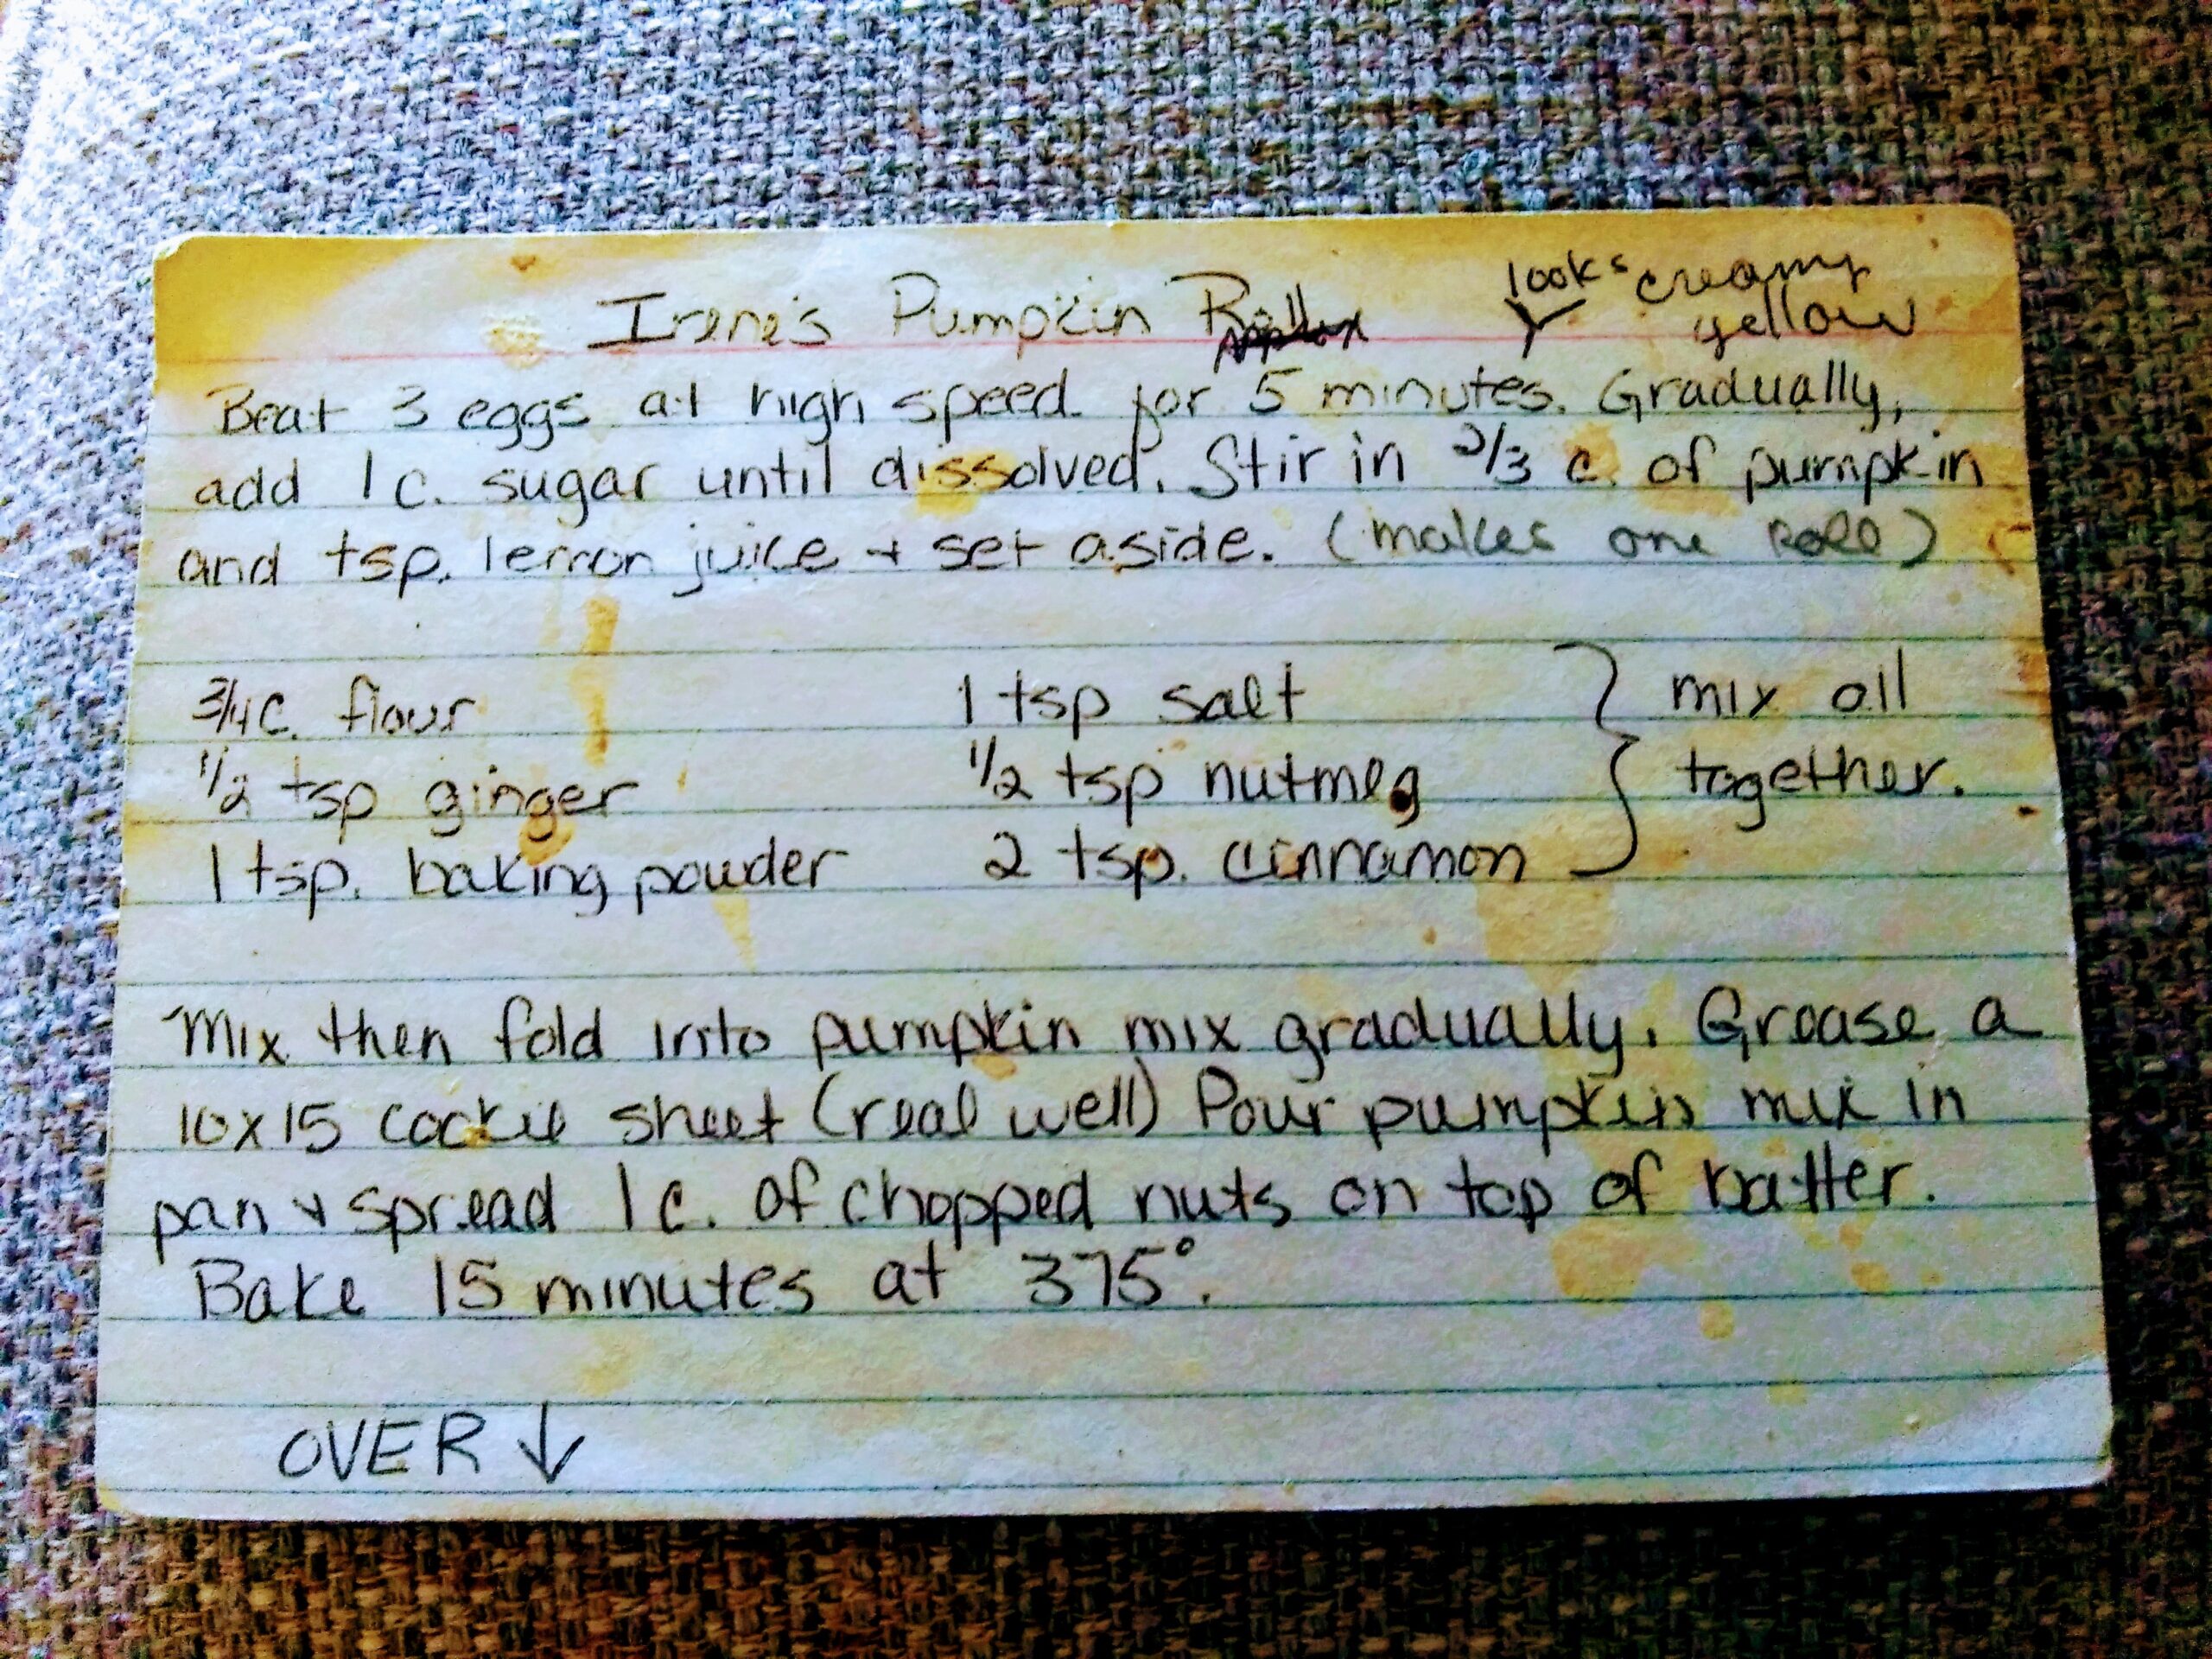 Irene's Pumpkin Roll
looks creamy
yellow
Beat 3 eggs at high speed for 5 minutes. Gradually,
add 1 c. sugar until dissolved. Stir in 2/3 c. of pumpkin
and tsp. lemon juice + set aside. (makes one Roll)
3/4 c. flour 1 tsp salt } mix all
1/2 tsp ginger 1/2 tsp nutmeg together.
1 tsp. baking powder 2 tsp. cinnamon
Mix then fold into pumpkin mix gradually. Grease a
10x15 cookie sheet (real well) Pour pumpkin mix in
pan + spread 1 c. of chopped nuts on top of batter.
Bake 15 minutes at 375°.
OVER ↓